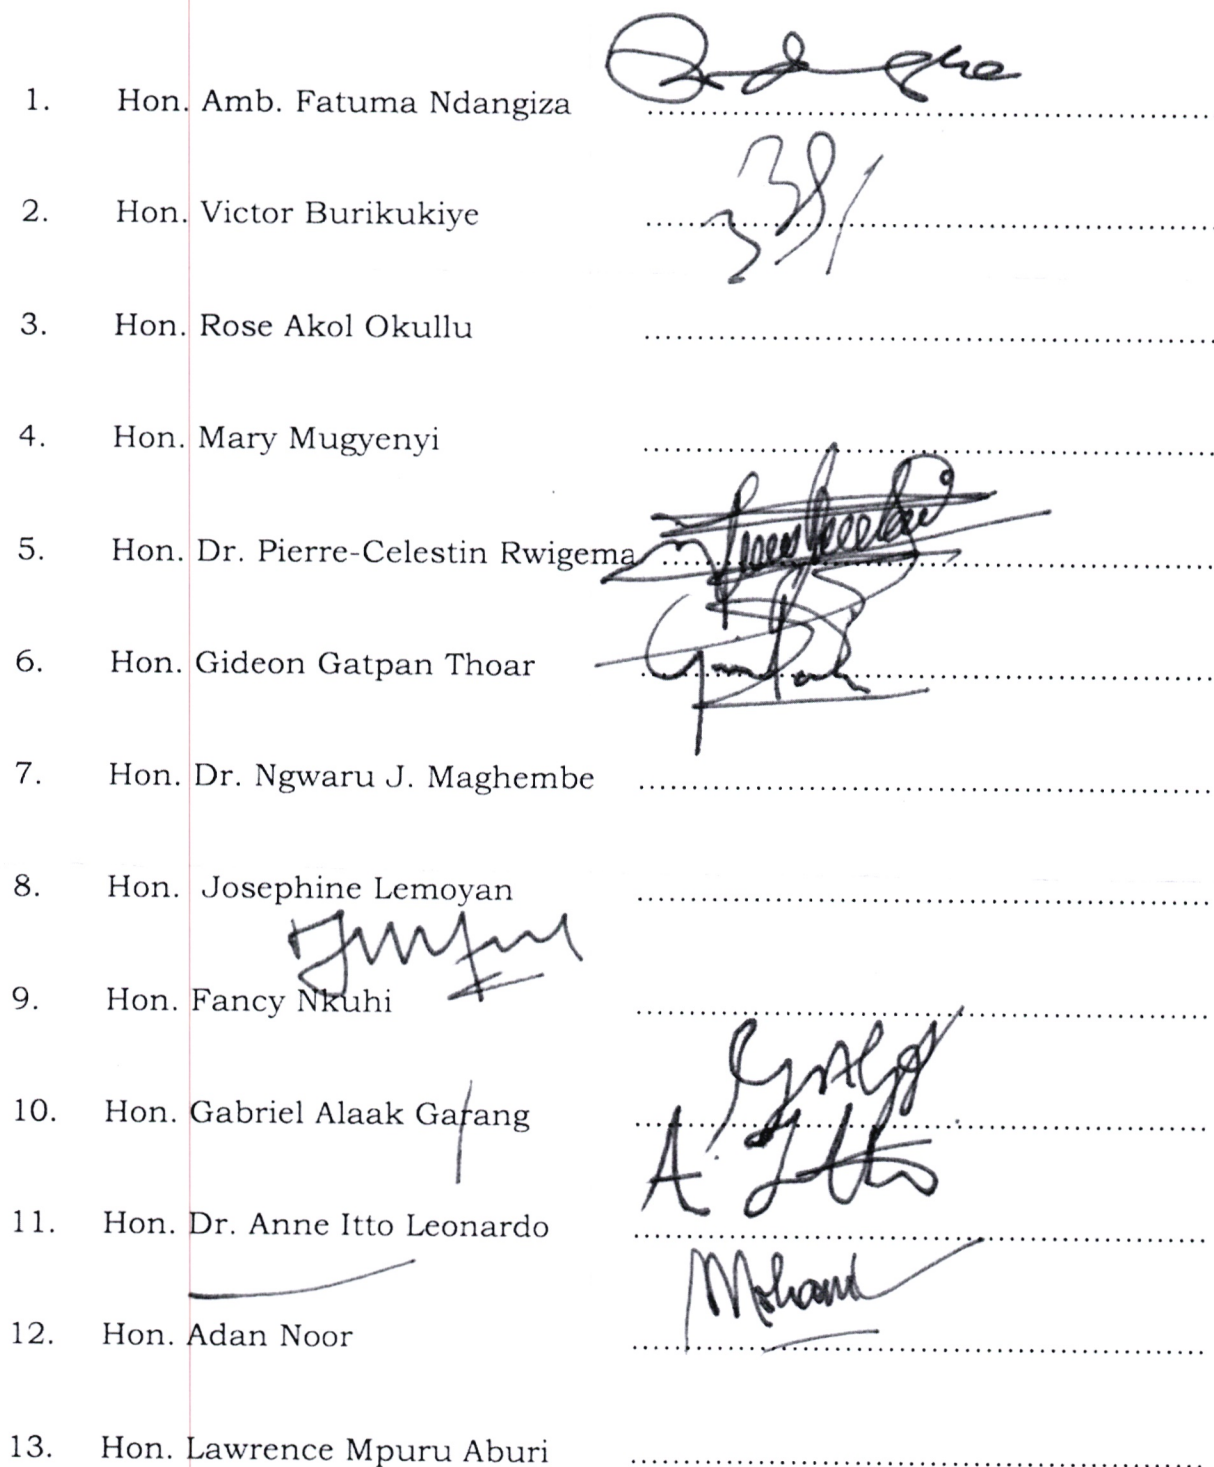 1. Hon. Amb. Fatuma Ndangiza ................
2. Hon. Victor Burikukiye ................
3. Hon. Rose Akol Okullu ................
4. Hon. Mary Mugyenyi ................
5. Hon. Dr. Pierre-Celestin Rwigema ................
6. Hon. Gideon Gatpan Thoar ................
7. Hon. Dr. Ngwaru J. Maghembe ................
8. Hon. Josephine Lemoyan ................
9. Hon. Fancy Nkuhi ................
10. Hon. Gabriel Alaak Garang ................
A. Itto
11. Hon. Dr. Anne Itto Leonardo ................
12. Hon. Adan Noor ................
13. Hon. Lawrence Mpuru Aburi ................